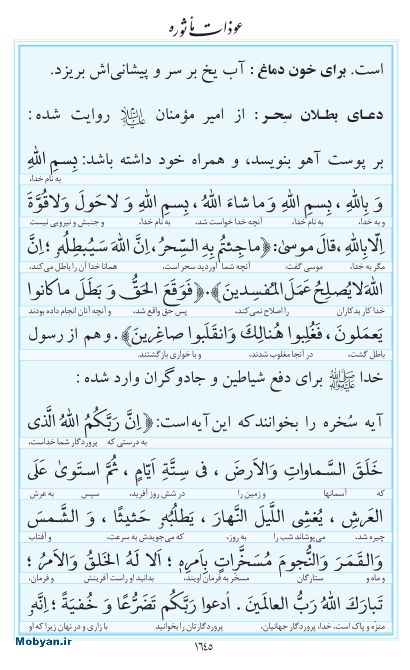 عوذات مأثوره
است. برای خون دماغ : آب یخ بر سر و پیشانی‌اش بریزد.
دعـای بطـلان سِحـر : از امیر مؤمنان ﷷ روایت شده :
بر پوست آهو بنویسد، و همراه خود داشته باشد: بِسمِ اللهِ
به نام خدا،
وَ بِاللهِ ، بِسمِ اللهِ وَ ما شاءَ اللهُ ، بِسمِ اللهِ وَ لا حَولَ وَ لا قُوَّةَ
و به خدا، به نام خدا، آنچه خدا خواست شد، به نام خدا، و جنبش و نیرویی نیست
اِلّا بِاللهِ ، قالَ موسىٰ: ﴿ما جِئتُم بِهِ السِّحرُ، اِنَّ اللهَ سَیُبطِلُهٗ ؛ اِنَّ
مگر به خدا، موسی گفت: آنچه شما آوردید سحر است، همانا خدا آن را باطل می‌کند،
اللهَ لا یُصلِحُ عَمَلَ المُفسِدینَ﴾. ﴿فَوَقَعَ الحَقُّ وَ بَطَلَ ما کانوا
خدا کار بدکاران را اصلاح نمی‌کند، پس حق واقع شد، و آنچه آنان انجام داده بودند
یَعمَلونَ ، فَغُلِبوا هُنالِكَ وَ انقَلَبوا صاغِرینَ﴾. و هم از رسول
باطل گشت، در آنجا مغلوب شدند، و با خواری بازگشتند.
خدا ﷺ برای دفع شیاطین و جادوگران وارد شده :
آیه سُخره را بخوانند که این آیه است: ﴿اِنَّ رَبَّکُمُ اللهُ الَّذی
به درستی که پروردگار شما خداست،
خَلَقَ السَّماواتِ وَ الاَرضَ ، فی سِتَّةِ اَیّامٍ ، ثُمَّ استَوىٰ عَلَی
که آسمانها و زمین را در شش روز آفرید، سپس به عرش
العَرشِ ، یُغشِی اللَّیلَ النَّهارَ ، یَطلُبُهٗ حَثیثًا ، وَ الشَّمسَ
چیره شد، می‌پوشاند شب را به روز، که می‌جویدش به سرعت، و آفتاب
وَ القَمَرَ وَ النُّجومَ مُسَخَّراتٍ بِاَمرِهٖ ؛ اَلا لَهُ الخَلقُ وَ الاَمرُ ؛
و ماه و ستارگان مسخّر به فرمان اویند، بدانید او راست آفرینش و فرمان،
تَبارَكَ اللهُ رَبُّ العالَمینَ . اُدعوا رَبَّکُم تَضَرُّعًا وَ خُفیَةً ؛ اِنَّهٗ
منزه و پاک است، خدا، پروردگار جهانیان، پروردگارتان را بخوانید با زاری و در نهان زیرا که او
١٦٤٥
Mobyan.ir